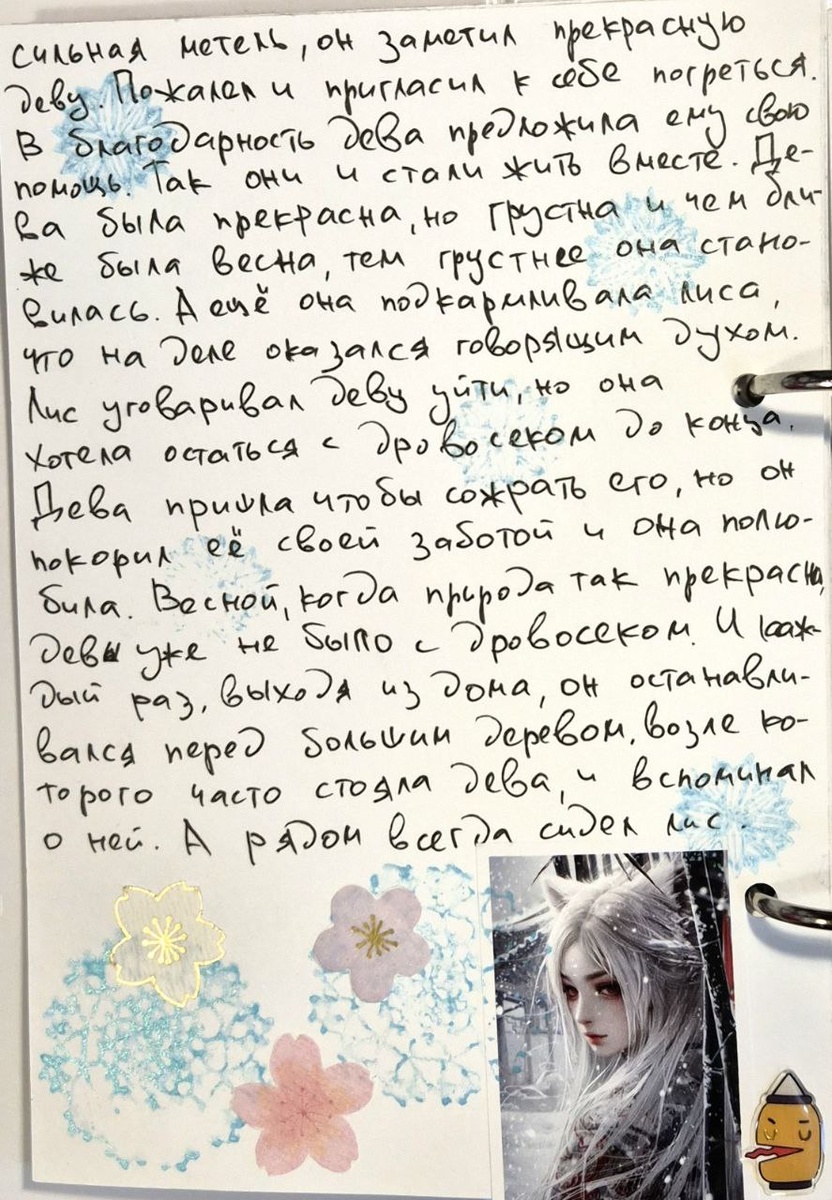 сильная метель, он заметил прекрасную
деву. Пожалел и пригласил к себе погреться.
В благодарность дева предложила ему свою
помощь. Так они и стали жить вместе. Де-
ва была прекрасна, но грустна и чем бли-
же была весна, тем грустнее она стано-
вилась. А ещё она подкармливала лиса,
что на деле оказался говорящим духом.
Лис уговаривал деву уйти, но она
хотела остаться с дровосеком до конца.
Дева пришла чтобы сожрать его, но он
покорил её своей заботой и она полю-
била. Весной, когда природа так прекрасна,
девы уже не было с дровосеком. И каж-
дый раз, выходя из дома, он останавли-
вался перед большим деревом, возле ко-
торого часто стояла дева, и вспоминал
о ней. А рядом всегда сидел лис.